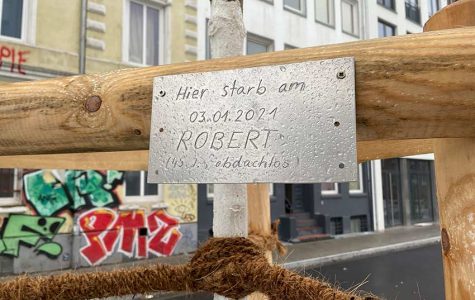 PIE
Hier starb am
03.01.2021
ROBERT
(45 J., obdachlos)
PMZ